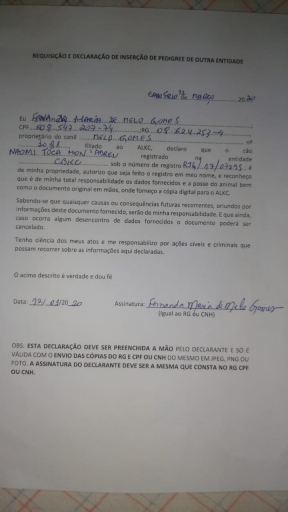 REQUISIÇÃO E DECLARAÇÃO DE INSERÇÃO DE PEDIGREE DE OUTRA ENTIDADE
de MARÇO 2020
Eu FERNANDA MARIA DE MELO GOMES
CPF RG
proprietário do canil MELO GOMES nº
filiado ao AUKC, declaro que o cão
NAOMI TOCA MON registrado na entidade
CBKC sob o número de registro e
de minha propriedade, autorizo que seja feito o registro em meu nome, e reconheço
que é de minha total responsabilidade os dados fornecidos e a posse do animal bem
como o documento original em mãos, onde forneço a cópia digital para o AUKC.
Sabendo-se que quaisquer causas ou consequências futuras recorrentes, oriundos por
informações deste documento fornecido, serão da minha responsabilidade. E que ainda,
caso ocorra algum desencontro de dados fornecidos o documento poderá ser
cancelado.
Tenho ciência dos meus atos e me responsabilizo por ações cíveis e criminais que
possam recorrer sobre as informações aqui declaradas.
O acima descrito é verdade e dou fé
Data: 17/03/2020 Assinatura: Fernanda Maria de Melo Gomes
(Igual ao RG ou CNH)
OBS: ESTA DECLARAÇÃO DEVE SER PREENCHIDA A MÃO PELO DECLARANTE E SÓ É
VÁLIDA COM O ENVIO DAS CÓPIAS DO RG E CPF OU CNH DO MESMO EM JPEG, PNG OU
FOTO. A ASSINATURA DO DECLARANTE DEVE SER A MESMA QUE CONSTA NO RG CPF
OU CNH.